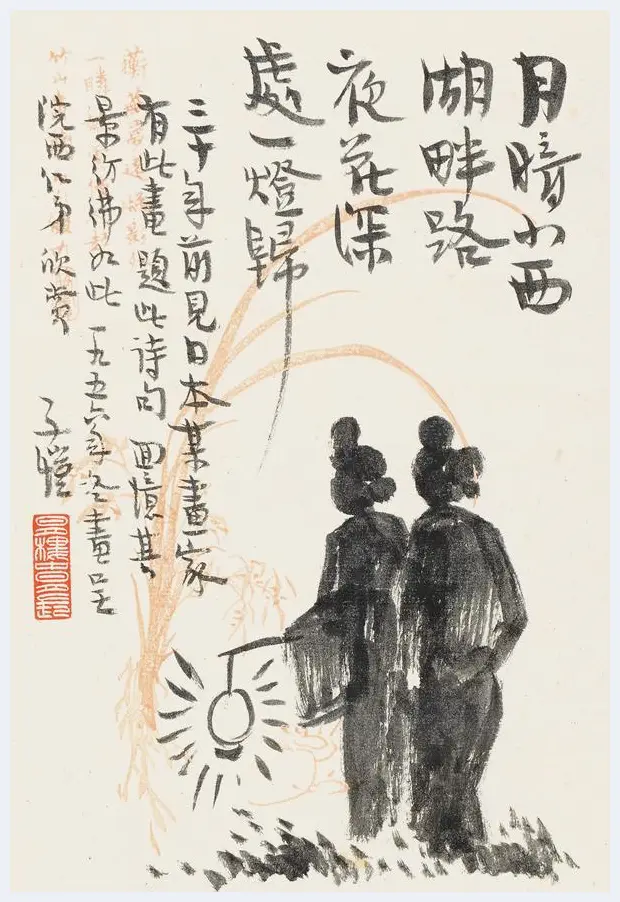 月暗小西
湖畔路
夜花深
處一燈歸
三十年前見日本某畫家
有此畫題此诗句 回憶其
景彷彿如此 一九五六年冬畫呈
浣西仁弟欣賞
子愷